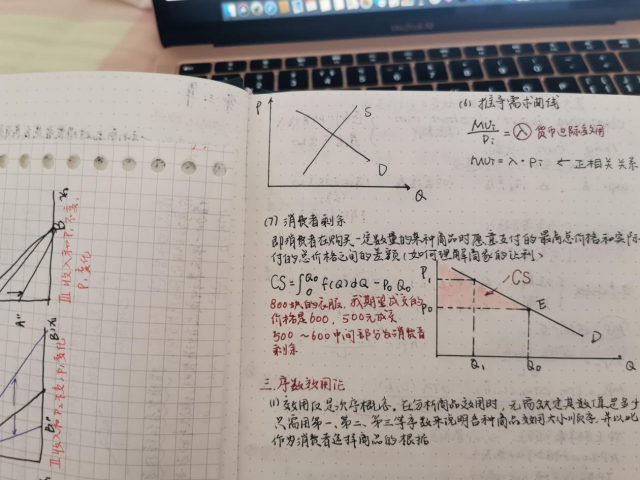 P
S
D
Q
(6) 推导需求曲线
MUi/Pi = λ 货币边际效用
MUi = λ·Pi ← 正相关关系
(7) 消费者剩余
即消费者在购买一定数量的某种商品时愿意支付的最高总价格和实际
付的总价格之间的差额（如何理解商家的让利）
CS=∫₀^Q₀ f(Q)dQ - P₀Q₀
800块的衣服，我期望成交的
价格是600，500元成交
500～600中间部分为消费者
剩余
P₁
P₀
CS
E
D
Q₁
Q₀
Q
三.序数效用论
(1) 效用仅是次序概念。在分析商品效用时，无需确定其数值是多少
只需用第一、第二、第三等序数来说明各种商品效用大小顺序，并以此
作为消费者选择商品的根据
X₁
B
A"
Ⅲ 收入和P₂不变，
P₁变化
B"